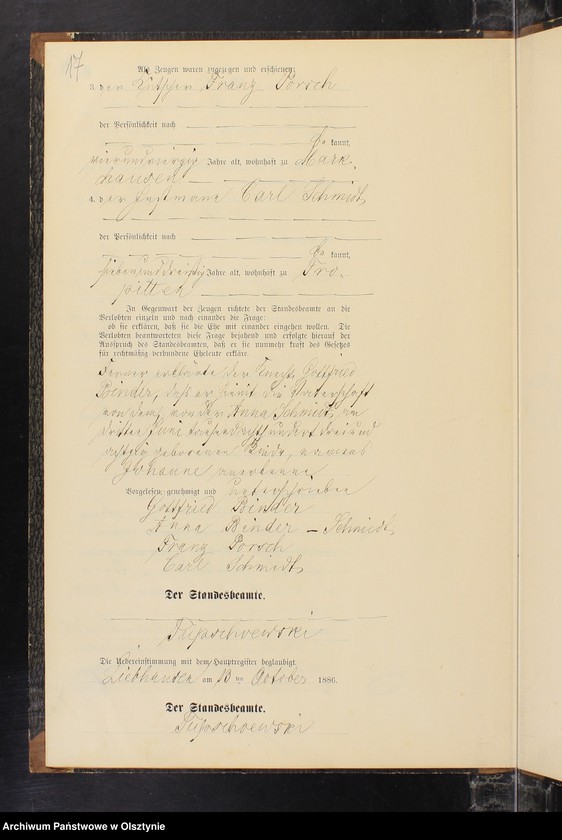 17
Als Zeugen waren zugezogen und erschienen:
3. der Franz Porsch
der Persönlichkeit nach
kannt,
vierundvierzig Jahre alt, wohnhaft zu Mark-
hausen
4. der Instmann Carl Schmidt,
der Persönlichkeit nach
kannt,
siebenunddreißig Jahre alt, wohnhaft zu Tro-
pitten
In Gegenwart der Zeugen richtete der Standesbeamte an die
Verlobten einzeln und nach einander die Frage:
ob sie erklären, daß sie die Ehe mit einander eingehen wollen. Die
Verlobten beantworteten diese Frage bejahend und erfolgte hierauf der
Ausspruch des Standesbeamten, daß er sie nunmehr kraft des Gesetzes
für rechtmäßig verbundene Eheleute erkläre.
Ferner erklärte der Knecht Gottfried
Binder, daß er hiermit die Vaterschaft
von dem, von der Anna Schmidt, am
dritten Juni tausend achthundert dreiund
achtzig geborenen Kinde, namens
Johanne anerkenne
Vorgelesen, genehmigt und unterschrieben
Gottfried Binder
Anna Binder – Schmidt,
Franz Porsch
Carl Schmidt,
Der Standesbeamte.
Die Uebereinstimmung mit dem Hauptregister beglaubigt.
am 13 ten October 1886.
Der Standesbeamte.
Archiwum Państwowe w Olsztynie